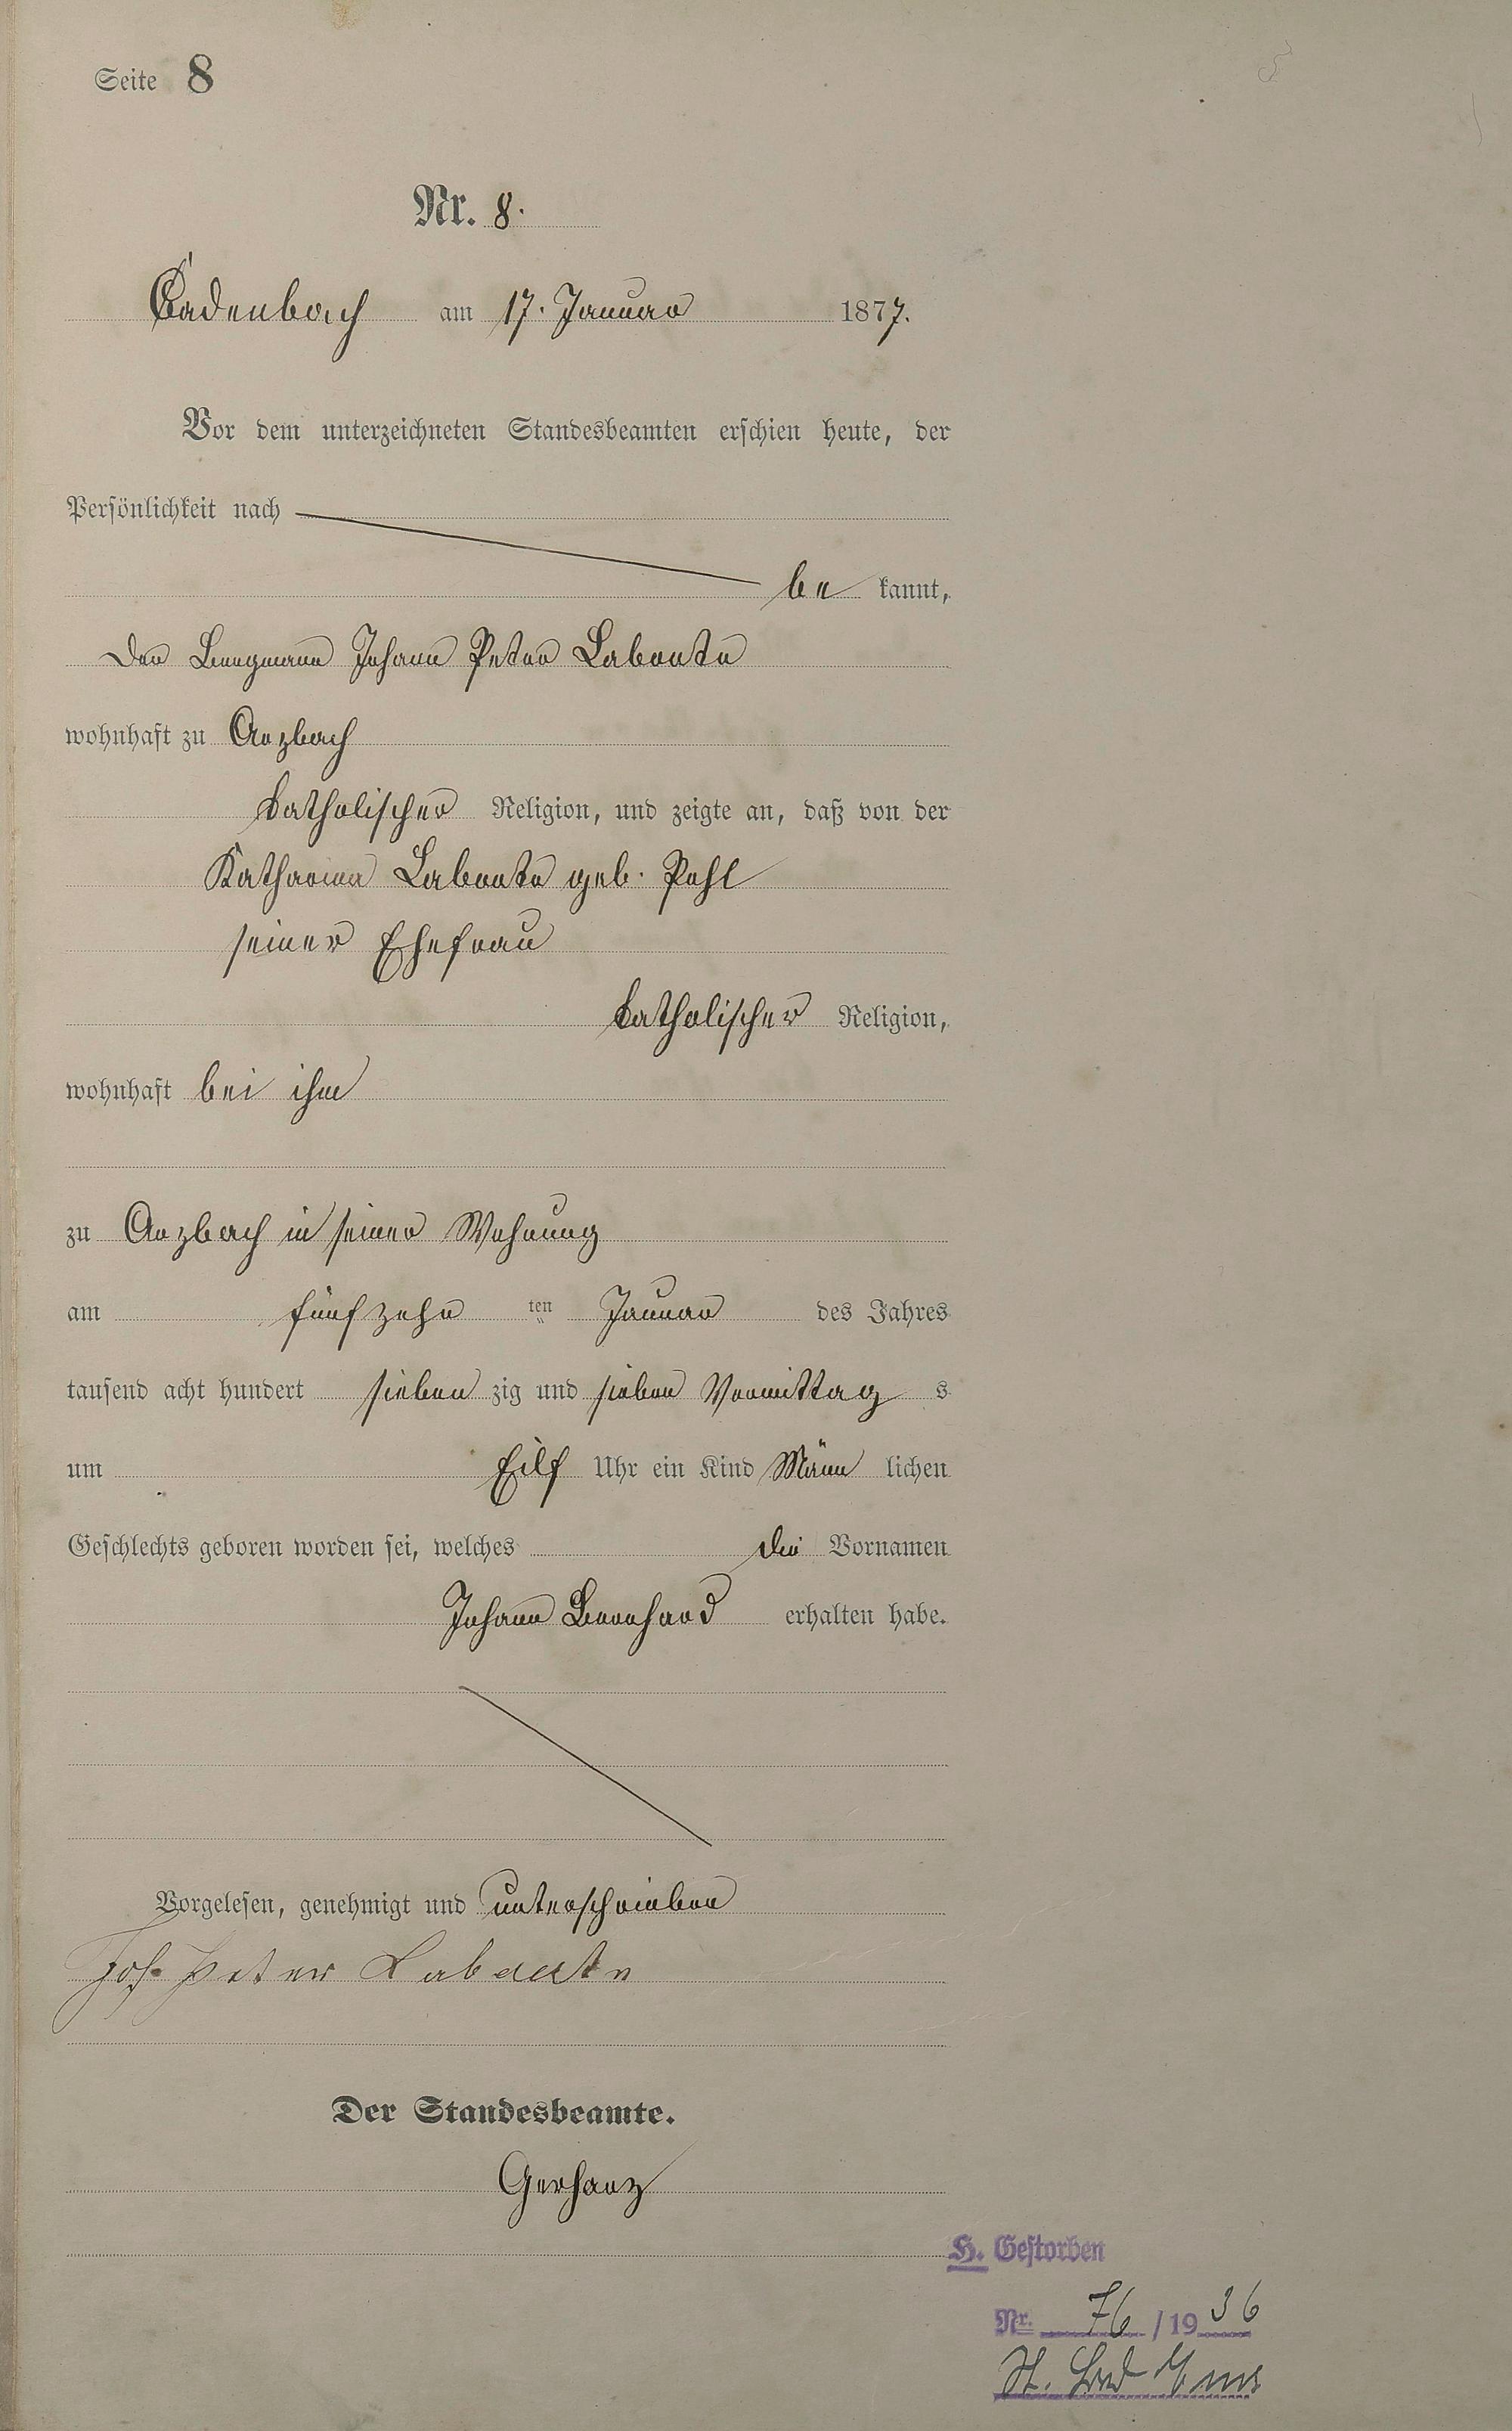 Seite 8
Nr. 8.
Cadenbach am 17. Januar 1877.
Vor dem unterzeichneten Standesbeamten erschien heute, der
Persönlichkeit nach
be kannt,
der Bergmann Johann Peter Labonte
wohnhaft zu Arzbach
katholischer Religion, und zeigte an, daß von der
Katharina Labonte geb. Pehl
seiner Ehefrau
katholischer Religion,
wohnhaft bei ihm
zu Arzbach in seiner Wohnung
am fünfzehn ten Januar des Jahres
tausend acht hundert sieben zig und sieben Vormittag s
um Eilf Uhr ein Kind Männ lichen
Geschlechts geboren worden sei, welches die Vornamen
Johann Bernhard erhalten habe.
Vorgelesen, genehmigt und unterschrieben
Joh. Peter Labonte
Der Standesbeamte.
Gerharz
H. Gestorben
Nr. 76 / 19 36
St. Bad Ems